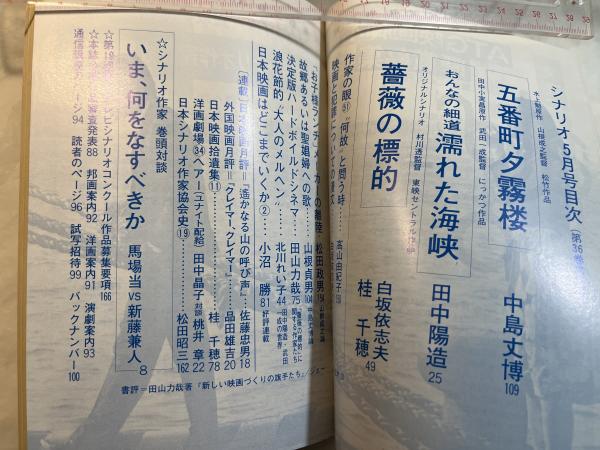 シナリオ5月号目次
(第36巻
水上勉原作 山根成之監督 松竹作品
五番町夕霧楼
中島丈博
109
田中小実昌原作 武田一成監督 にっかつ作品
おんなの細道 濡れた海峡
田中陽造
25
オリジナルシナリオ 村川透監督 東映セントラル作品
薔薇の標的
白坂依志夫
桂 千穂
49
作家の眼 51 "何故"と問う時……
高山由紀子
映画と犯罪についての
「お子様ランチ」メーカーの
松田政男
故郷あるいは聖娼婦への歌
山根貞男 104
決定版ハードボイルドシネマ
田山力哉 75
浪花節的"大人のメルヘン"
北川れい子 44
日本映画はどこまでいくか②
小沼 勝 81
好評連載
〔連載〕日本映画月評=「遥かなる山の呼び声」
佐藤忠男 18
外国映画月評=「クレイマー、クレイマー」
品田雄吉 20
日本映画拾遺集⑪
桂 千穂 78
洋画劇場㉞ヘアー(ユナイト配給)
田中晶子 対談 桃井 章 22
日本シナリオ作家協会史⑲
松田昭三 162
☆シナリオ作家 巻頭対談
いま、何をなすべきか
馬場当 vs 新藤兼人 8
作品募集要項 166
審査発表 88 邦画案内 92 洋画案内 91 演劇案内 93
94 読者のページ 96 試写招待 99 バックナンバー 100
書評=田山力哉著『新しい映画づくりの旗手たち』